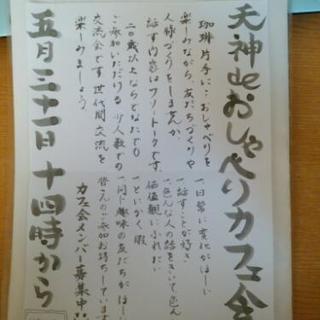 天神deおしゃべりカフェ会
珈琲片手に…おしゃべりを
楽しみながら、友だちづくりや
人脈づくりをしませんか。
話す内容はフリートークです。
二〇歳以上ならどなたでも
ご参加いただける少人数での
交流会です。世代間交流を
楽しみましょう。
・日常に変化がほしい
・話すことが好き
・色んな人の話をきいて色んな
価値観にふれたい
・とにかく暇
・同じ趣味の友だちがほしい
皆さんのご参加お待ちしています
カフェ会メンバー募集中!!
五月三十一日十四時から